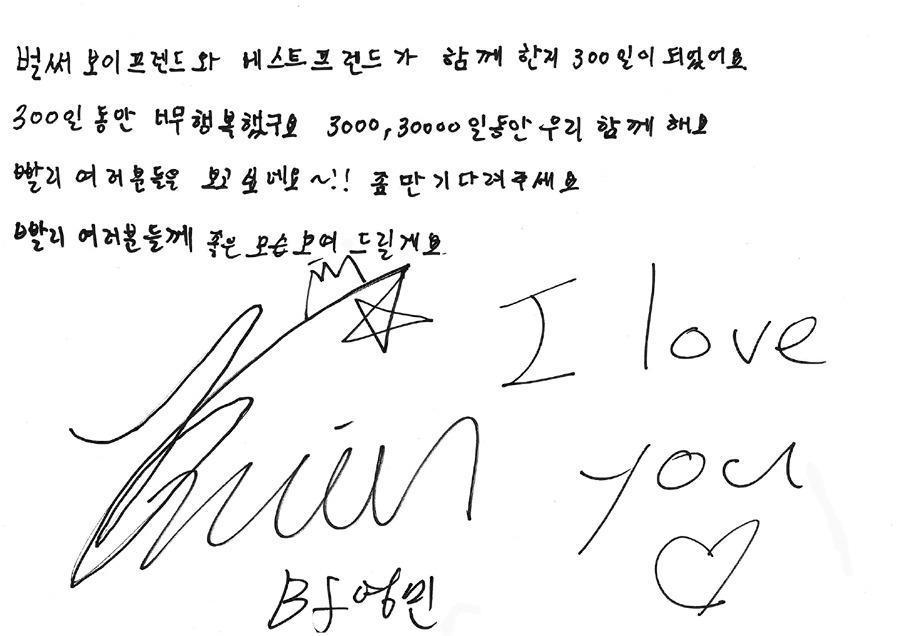 벌써 보이프렌드와 베스트프렌드가 함께 한지 300일이 되었어요
300일 동안 너무 행복했구요 3000,30000일동안 우리 함께 해요
빨리 여러분들은 보고 싶네요~!! 좀만 기다려주세요
빨리 여러분들께 좋은 모습 보여 드릴게요
I love
you
Bf 영민